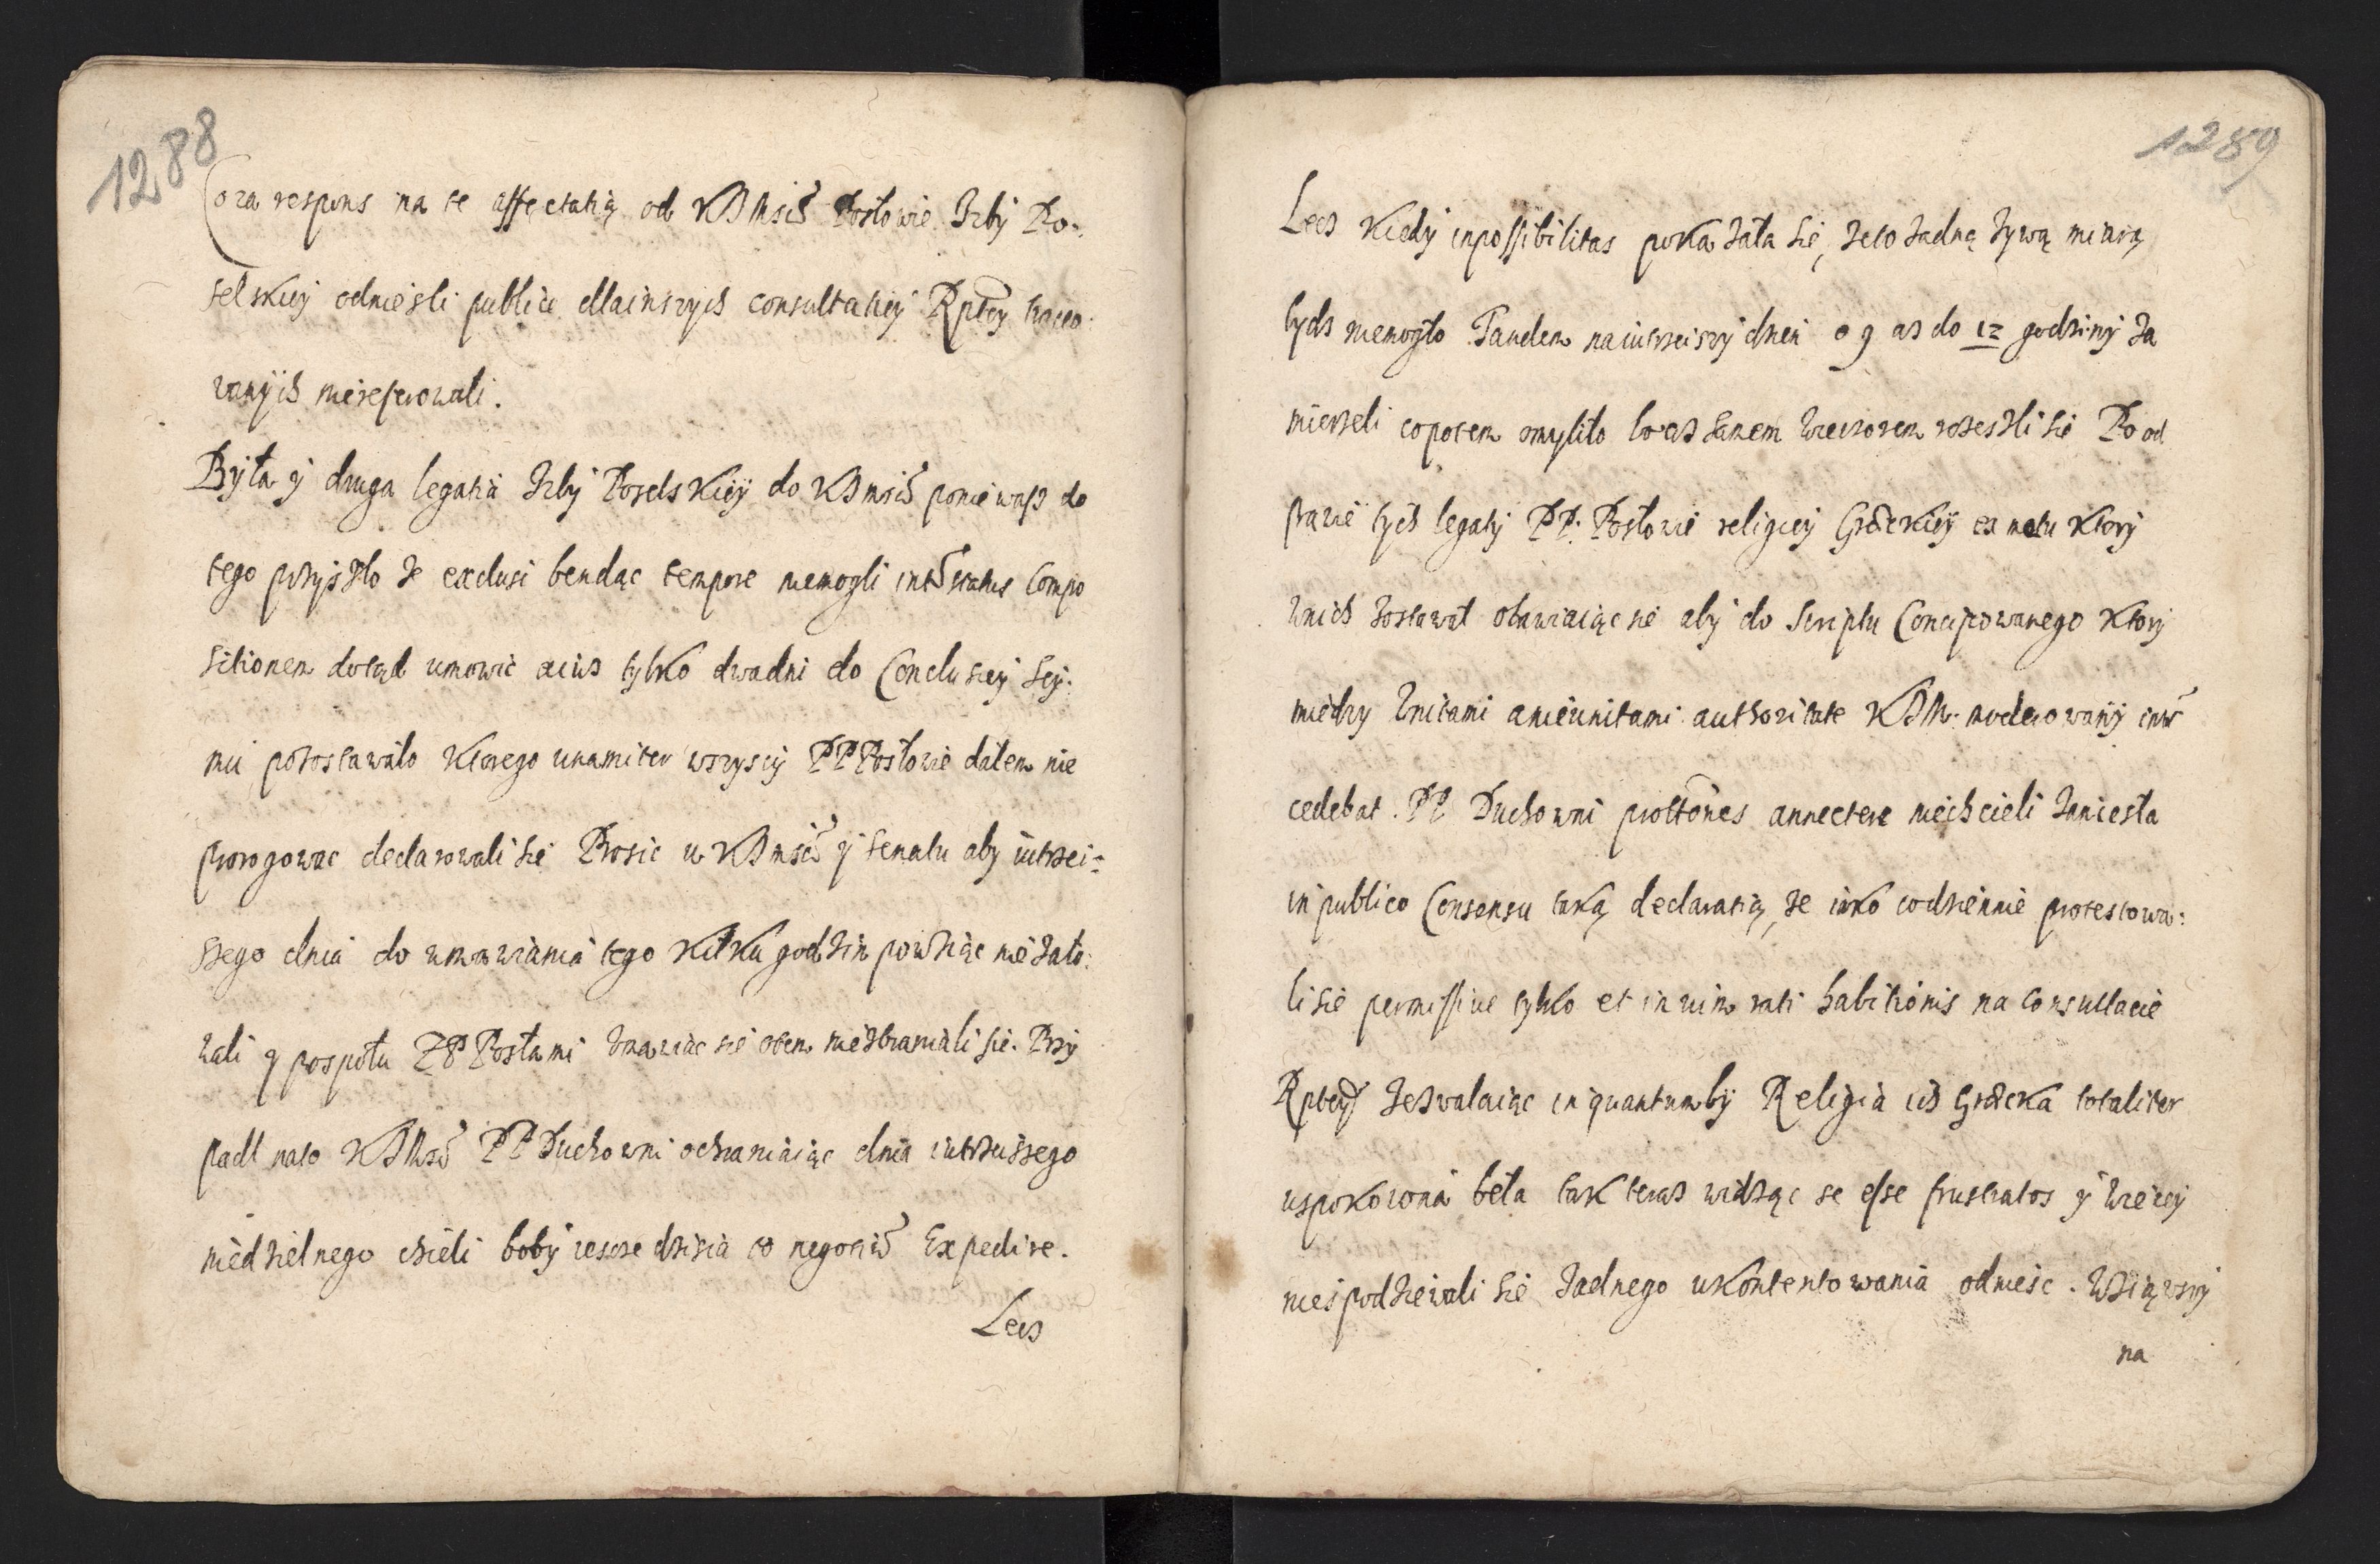 1288
Cora respons na te affectatią od KJMsci Posłowie Izby Po-
selskiey odniesli publice dla inszych consultatiey Rptey tracto-
wanych nie referowali.
Była y druga legatia Izby Poselskiey do KJmsci poniewasz do
tego przyszło ze exclusi bendąc tempore niemogli inter status Compo
sitionem dotąd umowic a iusz tylko dwa dni do Conclusiey Sey-
mu pozostawało ktorego unamiter wszyscy PP Posłowie dalem nie
prorogowac declarowali sie Prosic u KJmsci y senatu aby iutrzei-
szego dnia do umawiania tego kilku godzin powziąc nie zało-
wali y pospołu Z PP Posłami znawiac sie otem nie zbraniali sie. Przy
padl nato KJMsc PP Duchowni ochraniaiąc dnia iutrzeiszego
niedzielnego chcieli boby iescze dzisia to negotium Expedire.
Lecz
1289
Lecz kiedy inpossibilitas pokazała się, ze to zadną zywą miarą
bydz niemogło Tandem na iutrzeiszy dzien o 9 asz do 12 godziny za
mierzeli co potem omyliło bo asz samem wieczorem rozeszli sie Po od
prawie tych legaty PP. Posłowie religiey Graeckiey ex metu ktory
w nich zostawał obawiaiąc sie aby do scriptu Concipowanego ktory
między Unitami a nieunitami authoritate KJM. moderowany inter
cedebat. PP Duchowni proltones annectere niechcieli zaniesła
in publico Consensu taką declaratią, ze iako codziennie protestowa-
li sie permissive tylko et in vim rati habitionis na consultacie
Rptey zezwalaiąc in quantum by Religia ich Graecka totaliter
uspokoiona beła tak teraz widząc se esse frustratos y wiecey
niespodziewali sie zadnego ukontentowania odniesc. Wziąwszy
na